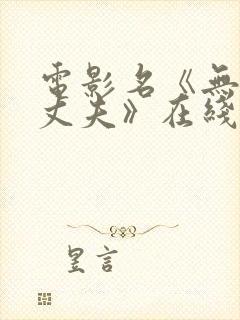 電影名《無
丈夫》在綫
昱言